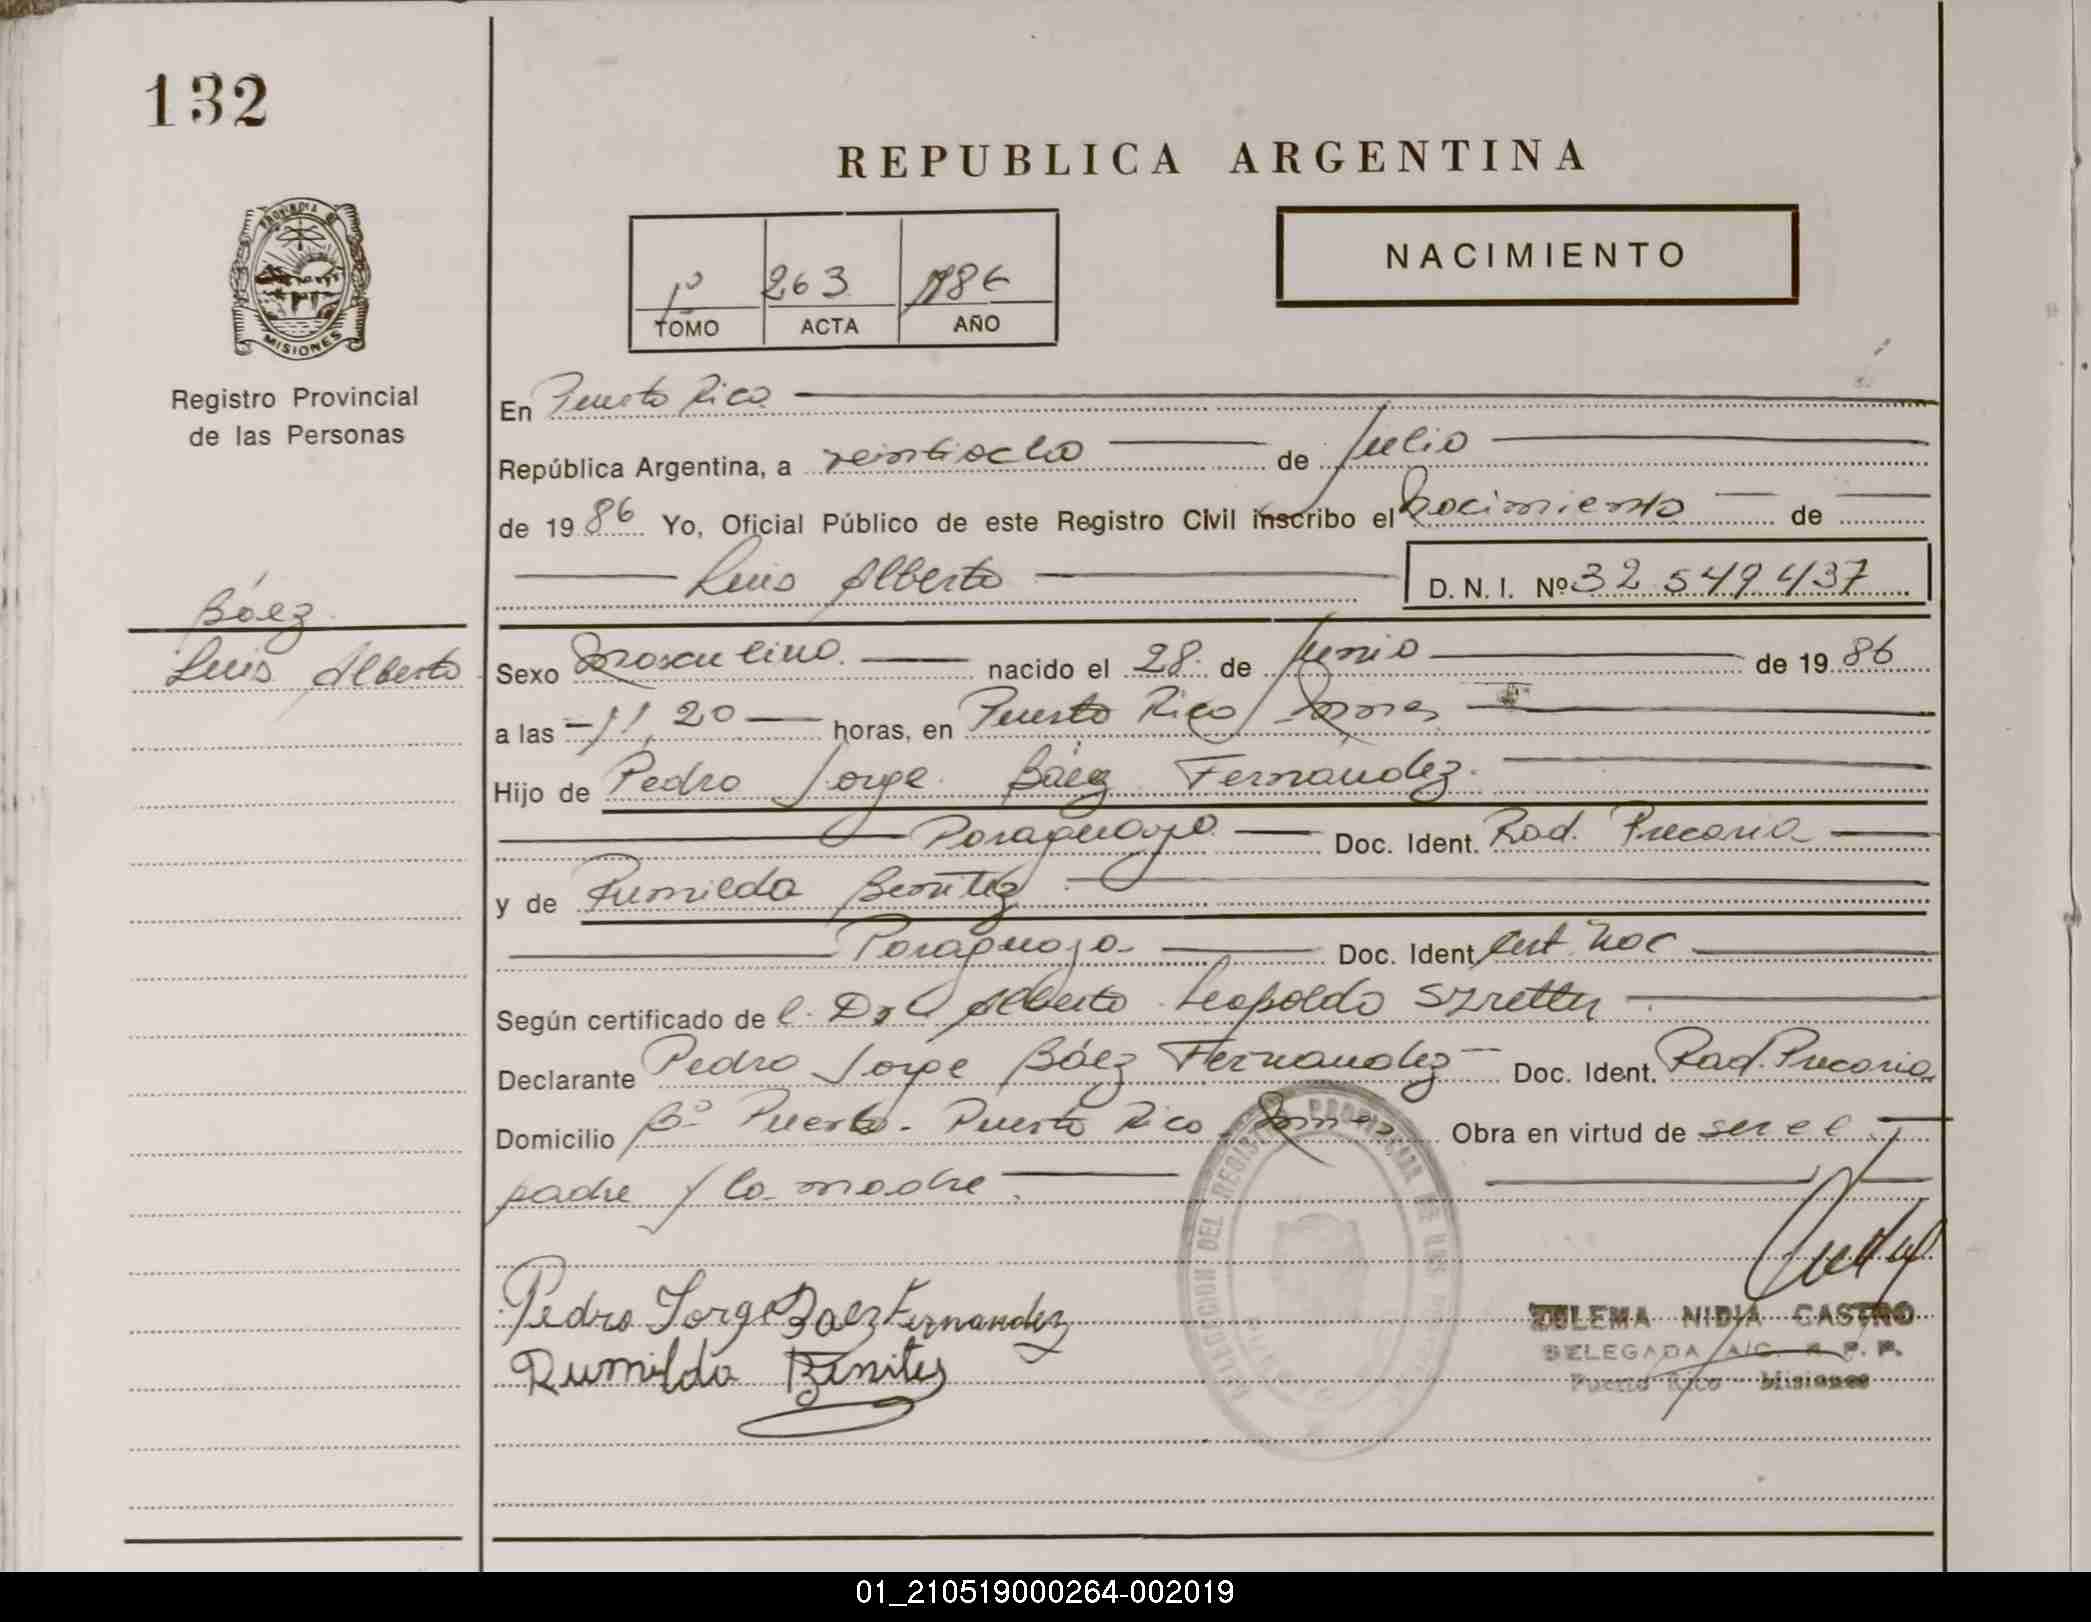 132
REPUBLICA ARGENTINA
PROVINCIA DE
MISIONES
Registro Provincial
de las Personas
NACIMIENTO
1º 263 1986
TOMO ACTA AÑO
En Puerto Rico
República Argentina, a veintiocho de Julio
de 1986 Yo, Oficial Público de este Registro Civil inscribo el Nacimiento de
Luis Alberto D. N. I. Nº 32 549 437
Báez
Luis Alberto
Sexo Masculino. nacido el 28 de Junio de 1986
a las 11,20 horas, en Puerto Rico, Mnes.
Hijo de Pedro Jorge Báez Fernández.
Paraguayo Doc. Ident. Rad. Precaria
y de Rumilda Benítez
Paraguaya Doc. Ident. Cert. Nac
Según certificado de l. Dr. Alberto Leopoldo Szretter
Declarante Pedro Jorge Báez Fernández Doc. Ident. Rad. Precaria
Domicilio Bº Puerto. Puerto Rico, Mnes. Obra en virtud de ser el
padre y la madre
DELEGACION DEL REGISTRO PROVINCIAL DE LAS
Pedro Jorge Baez Fernandez
Rumilda Benites
ZULEMA NIDIA CASTRO
DELEGADA A/C. R. P. P.
Puerto Rico Misiones
01_210519000264-002019